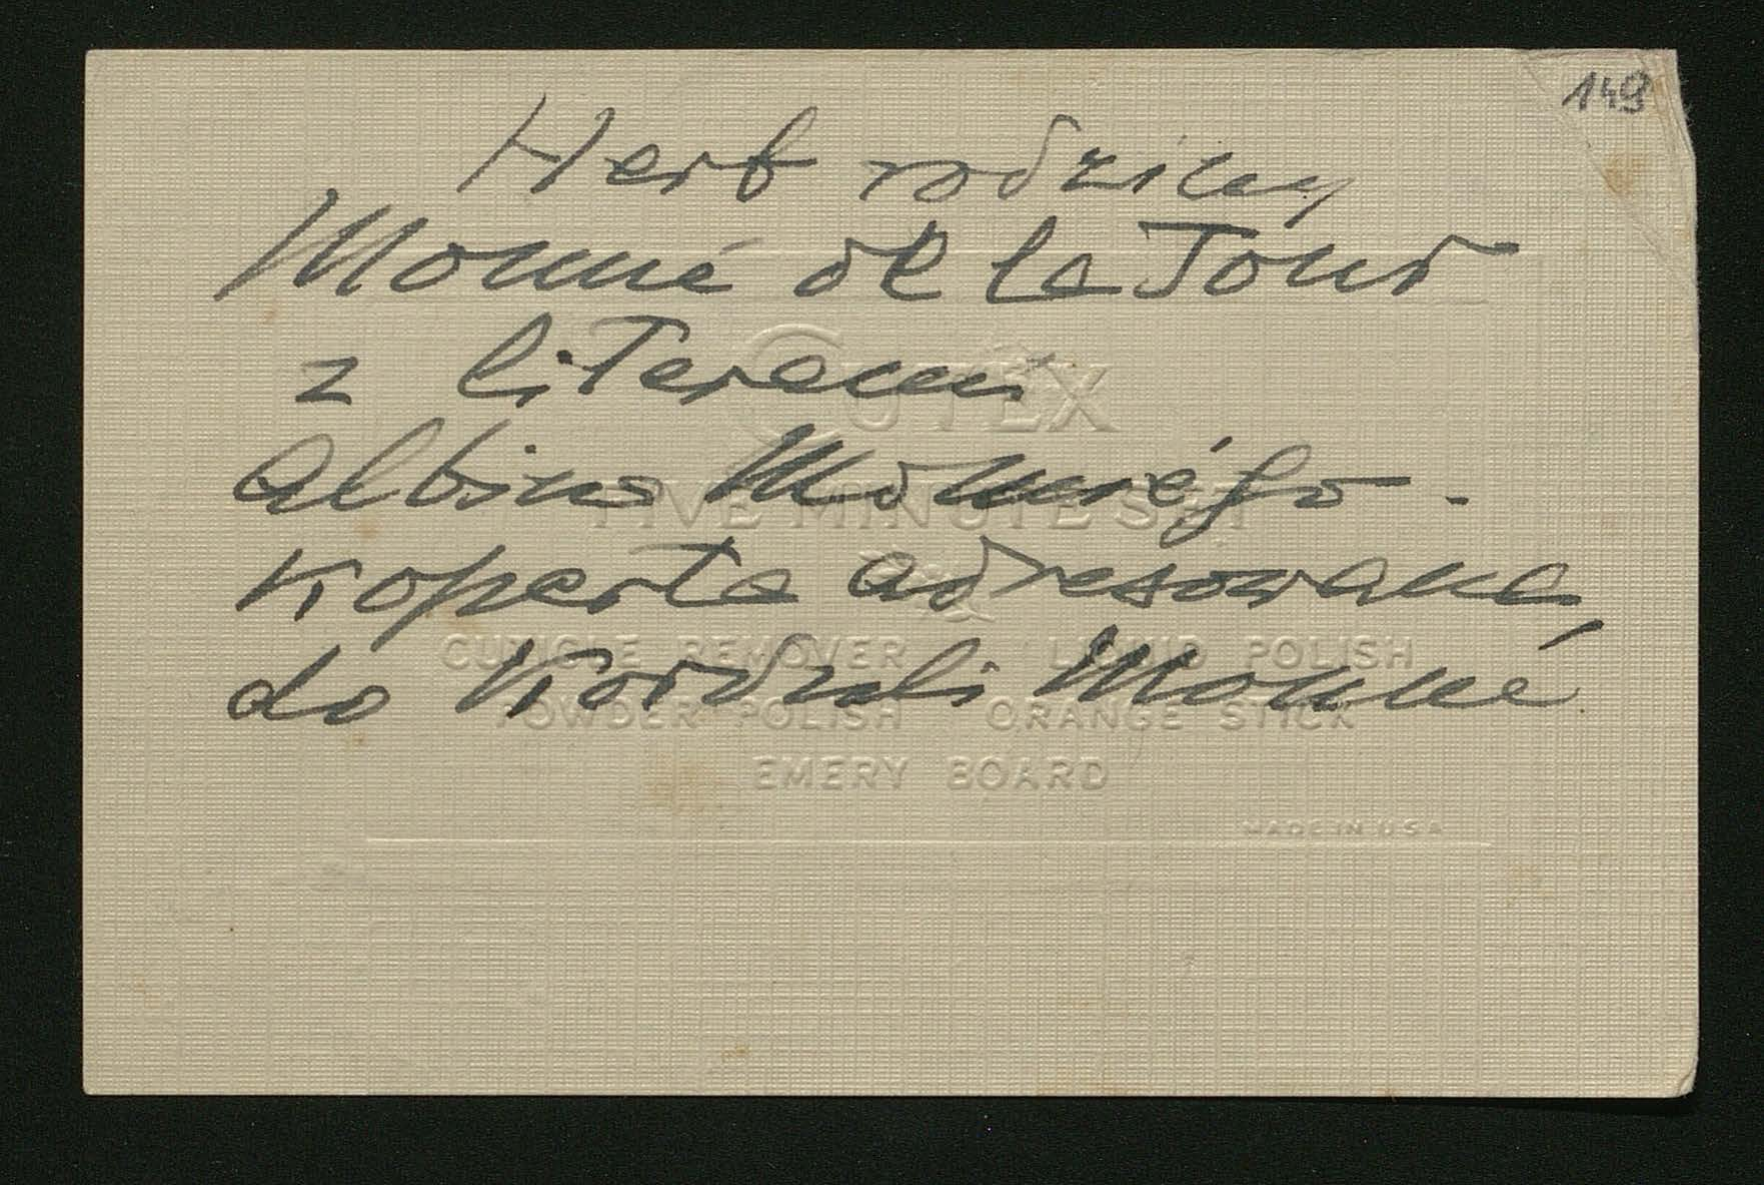 149
Herb rodziny
Monné de la Tour
z literami
Albina Monnégo.
Koperta adresowana
do Korduli Monné
CUTEX
FIVE MINUTE SET
CUTICLE REMOVER LIQUID POLISH
POWDER POLISH ORANGE STICK
EMERY BOARD
MADE IN USA